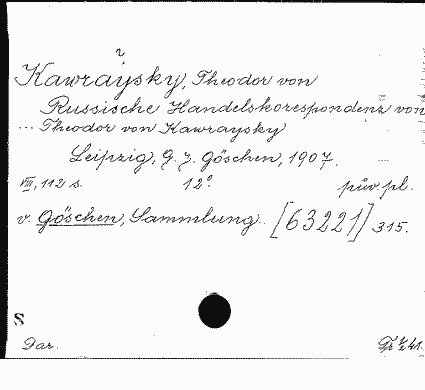 Kawraÿsky, Theodor von
Russische Handelskorespondenz von
... Theodor von Kawraysky
Leipzig, G. J. Göschen, 1907.
VIII, 112 s. 12° pův. pl.
v. Göschen, Sammlung. [63221] 315.
S
Dar.